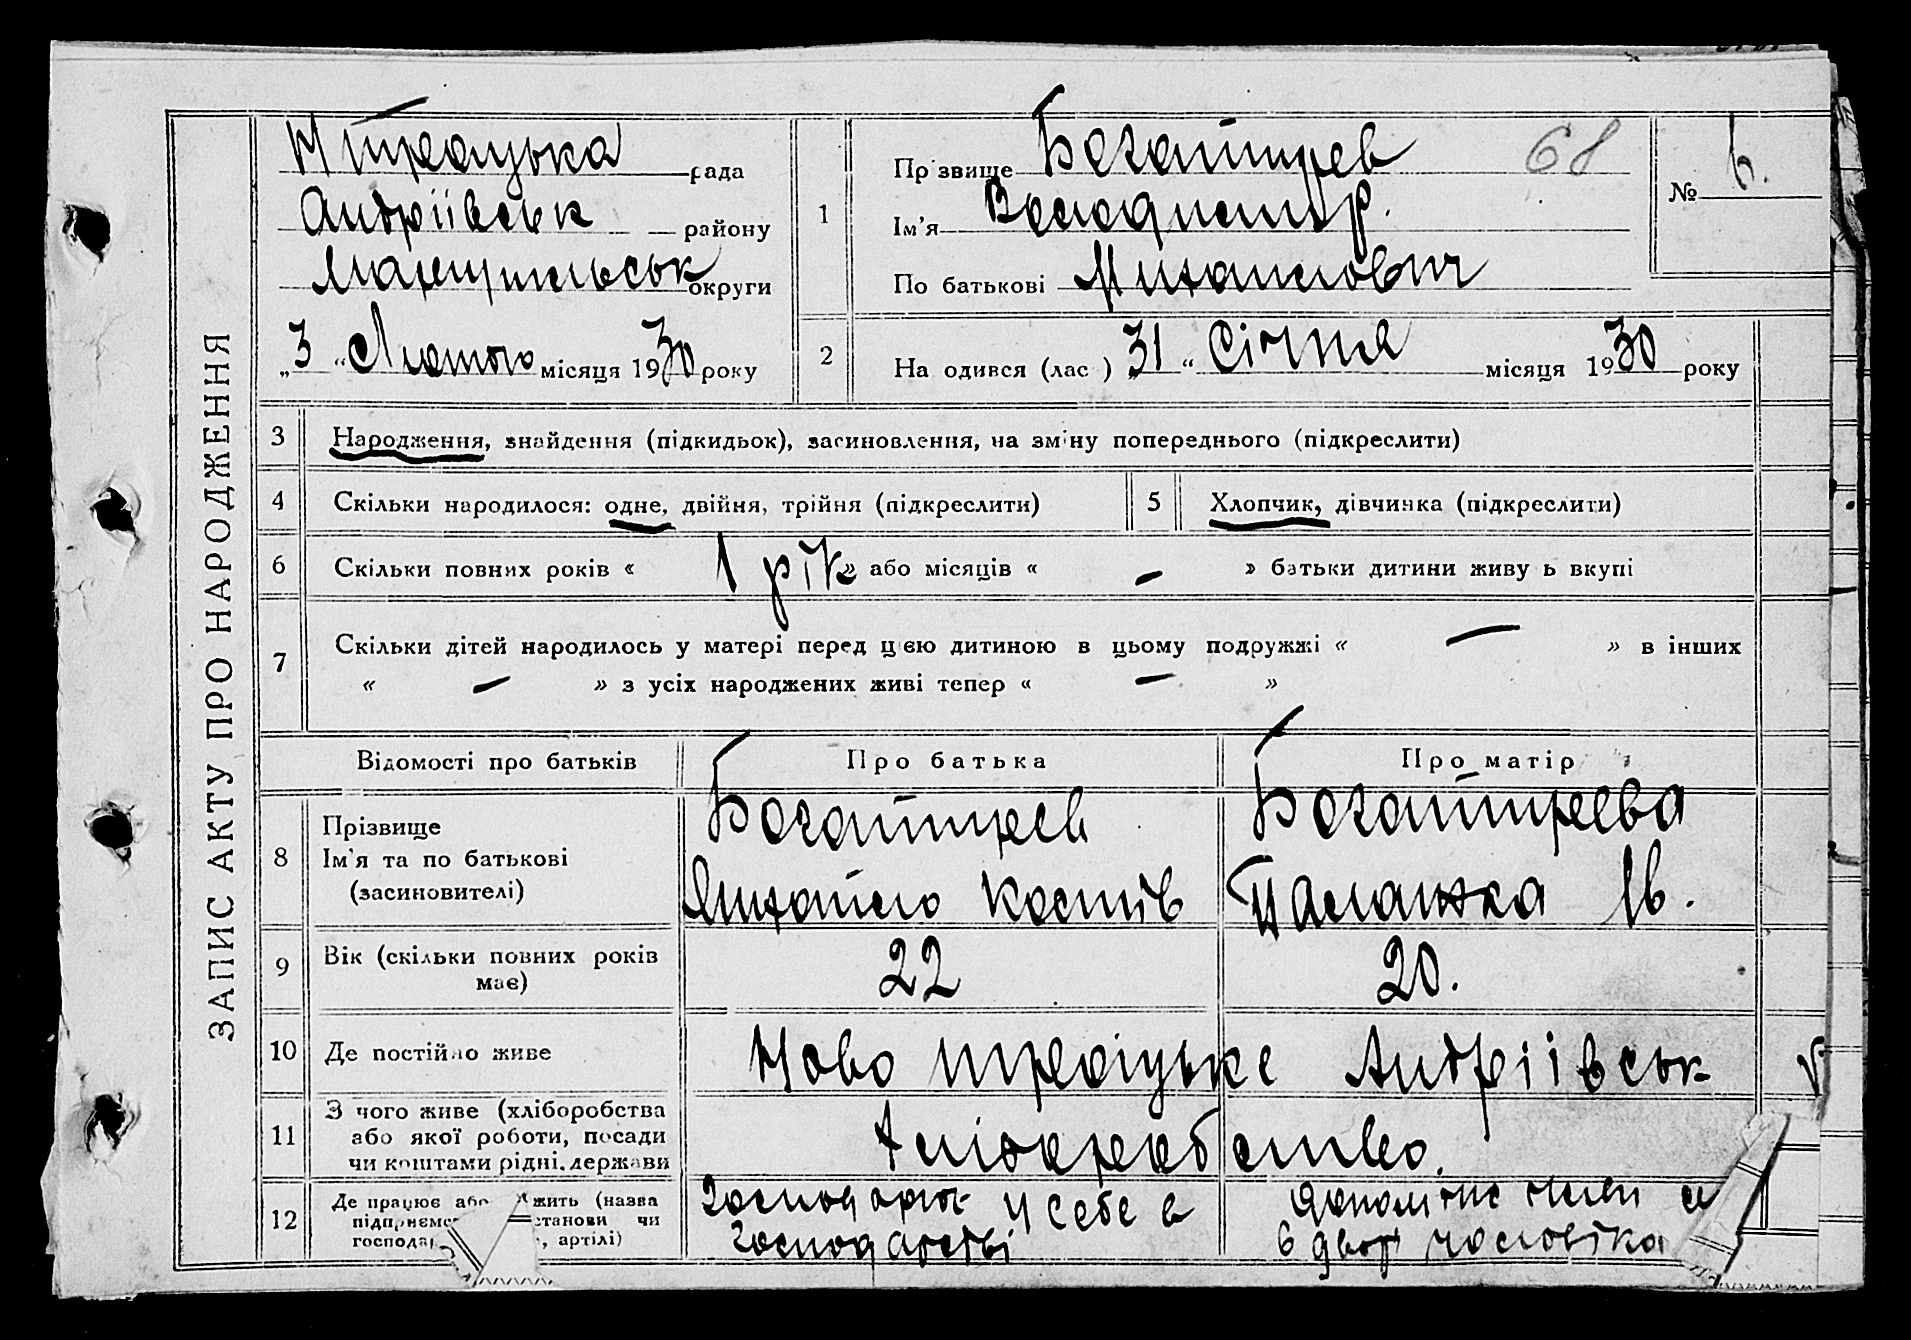 ЗАПИС АКТУ ПРО НАРОДЖЕННЯ
Н Троіцька рада
Андріівськ району
Маріупільськ округи
„3“ Лютого місяця 1930 року
1
Прізвище Богатирев
68
Ім'я Володимир.
По батькові Михайлович
№ 6.
2
Народився (лась) „31“ Січня місяця 1930 року
3 Народження, знайдення (підкидьок), засиновлення, на зміну попереднього (підкреслити)
4 Скільки народилося: одне, двійня, трійня (підкреслити)
5 Хлопчик, дівчинка (підкреслити)
6 Скільки повних років « 1 рік » або місяців « — » батьки дитини живуть вкупі
7 Скільки дітей народилось у матері перед цією дитиною в цьому подружжі « — » в інших
« — » з усіх народжених живі тепер « — »
Відомості про батьків Про батька Про матір
8 Прізвище
Ім'я та по батькові
(засиновителі)
Богатирев
Михайло Костів
Богатирева
Палажка Ів.
9 Вік (скільки повних років
має)
22 20.
10 Де постійно живе Ново Троіцьке Андріівськ
11 З чого живе (хліборобства
або якої роботи, посади
чи коштами рідні, держави
Хліборобство.
12 Де працює або жить (назва
станови чи
, артілі)
Господарює у себе в
господарстві
Допоміжне
в дворі чоловіка